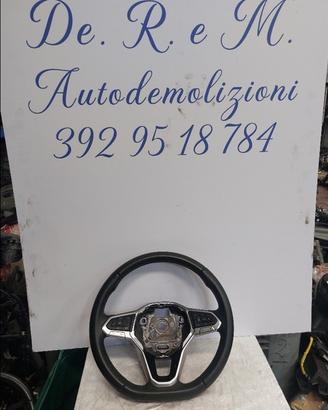 De. R. e M.
Autodemolizioni
392 95 18 784